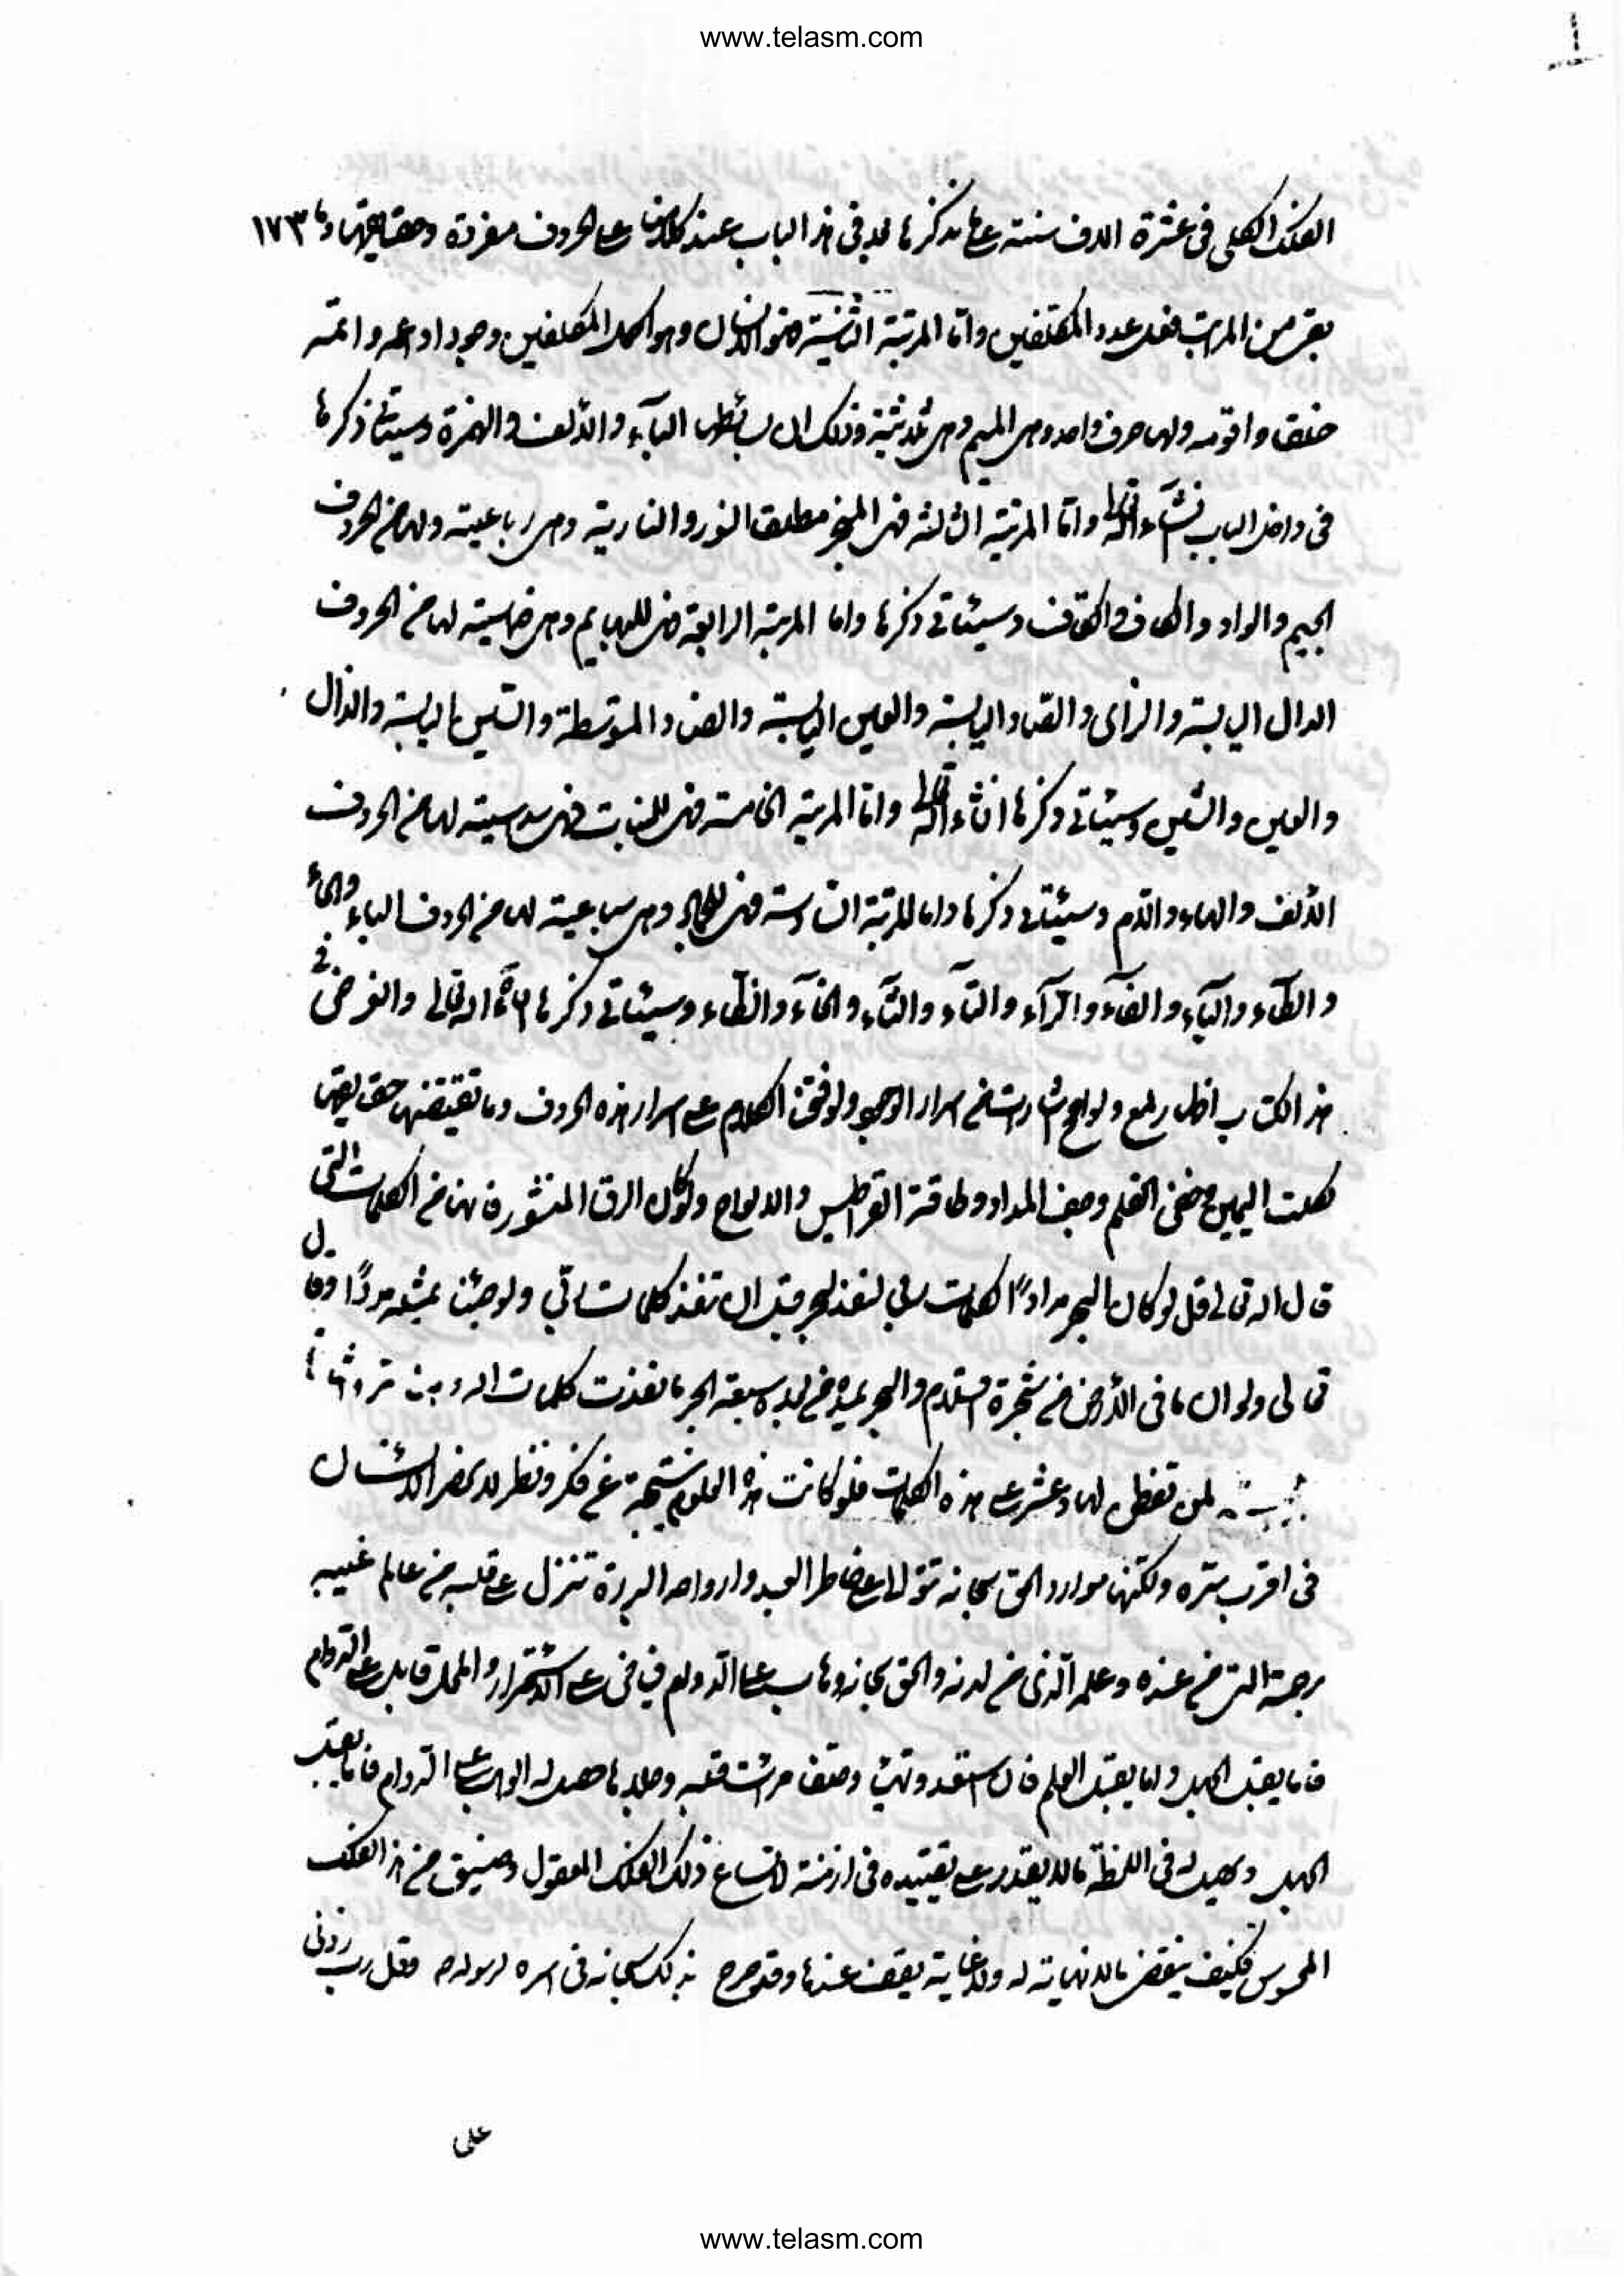 www.telasm.com
الفلك الكلي في عشرة الاف سنة على ما نذكرها بعد في هذا الباب عند كلامنا على الحروف مفردة وحقايقها وما ١٧٣
بقي من المراتب فعلى عدد المكلفين واما المرتبة الثانية فهو الانسان وهو اكمل المكلفين وجودا واعمه واتمه
خلقا واقومه ولها حرف واحد وهي الميم وهي ثلاثية وذلك ان بسائطها الياء والالف والهمزة وسياتي ذكرها
في داخل الباب انشاء الله تعالى واما المرتبة الثالثة فهي للجن مطلقا النور والنارية وهي رباعية ولها من الحروف
الجيم والواو والكاف والقاف وسيئاتي ذكرها واما المرتبة الرابعة فهي للبهايم وهي خماسية لها من الحروف
الدال اليابسة والزاى والصاد اليابسة والعين اليابسة والضاد المتوسطة والسين اليابسة والذال
والغين والشين وسيئاتي ذكرها انشاء الله تعالى واما المرتبة الخامسة فهي للنبات فهي سدسية لها من الحروف
الالف والهاء واللام وسيئاتي ذكرها واما المرتبة السادسة فهي للجماد وهي سباعية لها من الحروف الباء والحاء
والطاء والياء والفاء والراء والتاء والثاء والخاء والظاء وسيئاتي ذكرها انشاء الله تعالى والغرض في
هذا الكتاب اظهار لمع ولوايح اشارات من اسرار الوجود ولو فتحنا الكلام على اسرار هذه الحروف وما تقتضيه حقايقها
لكلت اليمين وحفى القلم وجف المداد وضاقت القراطيس والالواح ولو كان الرق المنشور فانها من الكلمات التي
قال الله تعالى قل لو كان البحر مدادًا لكلمات ربي لنفد البحر قبل ان تنفذ كلمات ربي ولو جئنا بمثله مددًا وقال
تعالى ولو ان ما في الارض من شجرة اقلام والبحر يمده من بعده سبعة ابحر ما نفذت كلمات الله وهنا
لمن تفطن لها وعثر على هذه الكلمات فلو كانت هذه العلوم نتيجة عن فكر ونظر لانحصر الانسان
في اقرب مدة ولكنها موارد الحق سبحانه تتوالى على خاطر العبد وارواحه البررة تنزل على قلبه من عالم غيبه
برحمته التي من عنده وعلمه الذي من لدنه والحق سبحانه وهاب على الدوام فياض على الاستمرار والمحل قابل على الدوام
فاما يقبل الجهل واما يقبل العلم فان استعد وتهيأ وصفى مرآت قلبه وجلاها حصل له الوهب على الدوام فاما يقبل
الجهل ويحصل له في اللحظة ما لا يقدر على تقييده في ازمنة لاتساع ذلك الفلك المعقول وضيق من هذا الفلك
المحسوس فكيف ينقضي ما لا نهاية له ولا غاية يقف عندها وقد صرح بذلك سبحانه في امره لرسوله وقل رب زدني
على
www.telasm.com